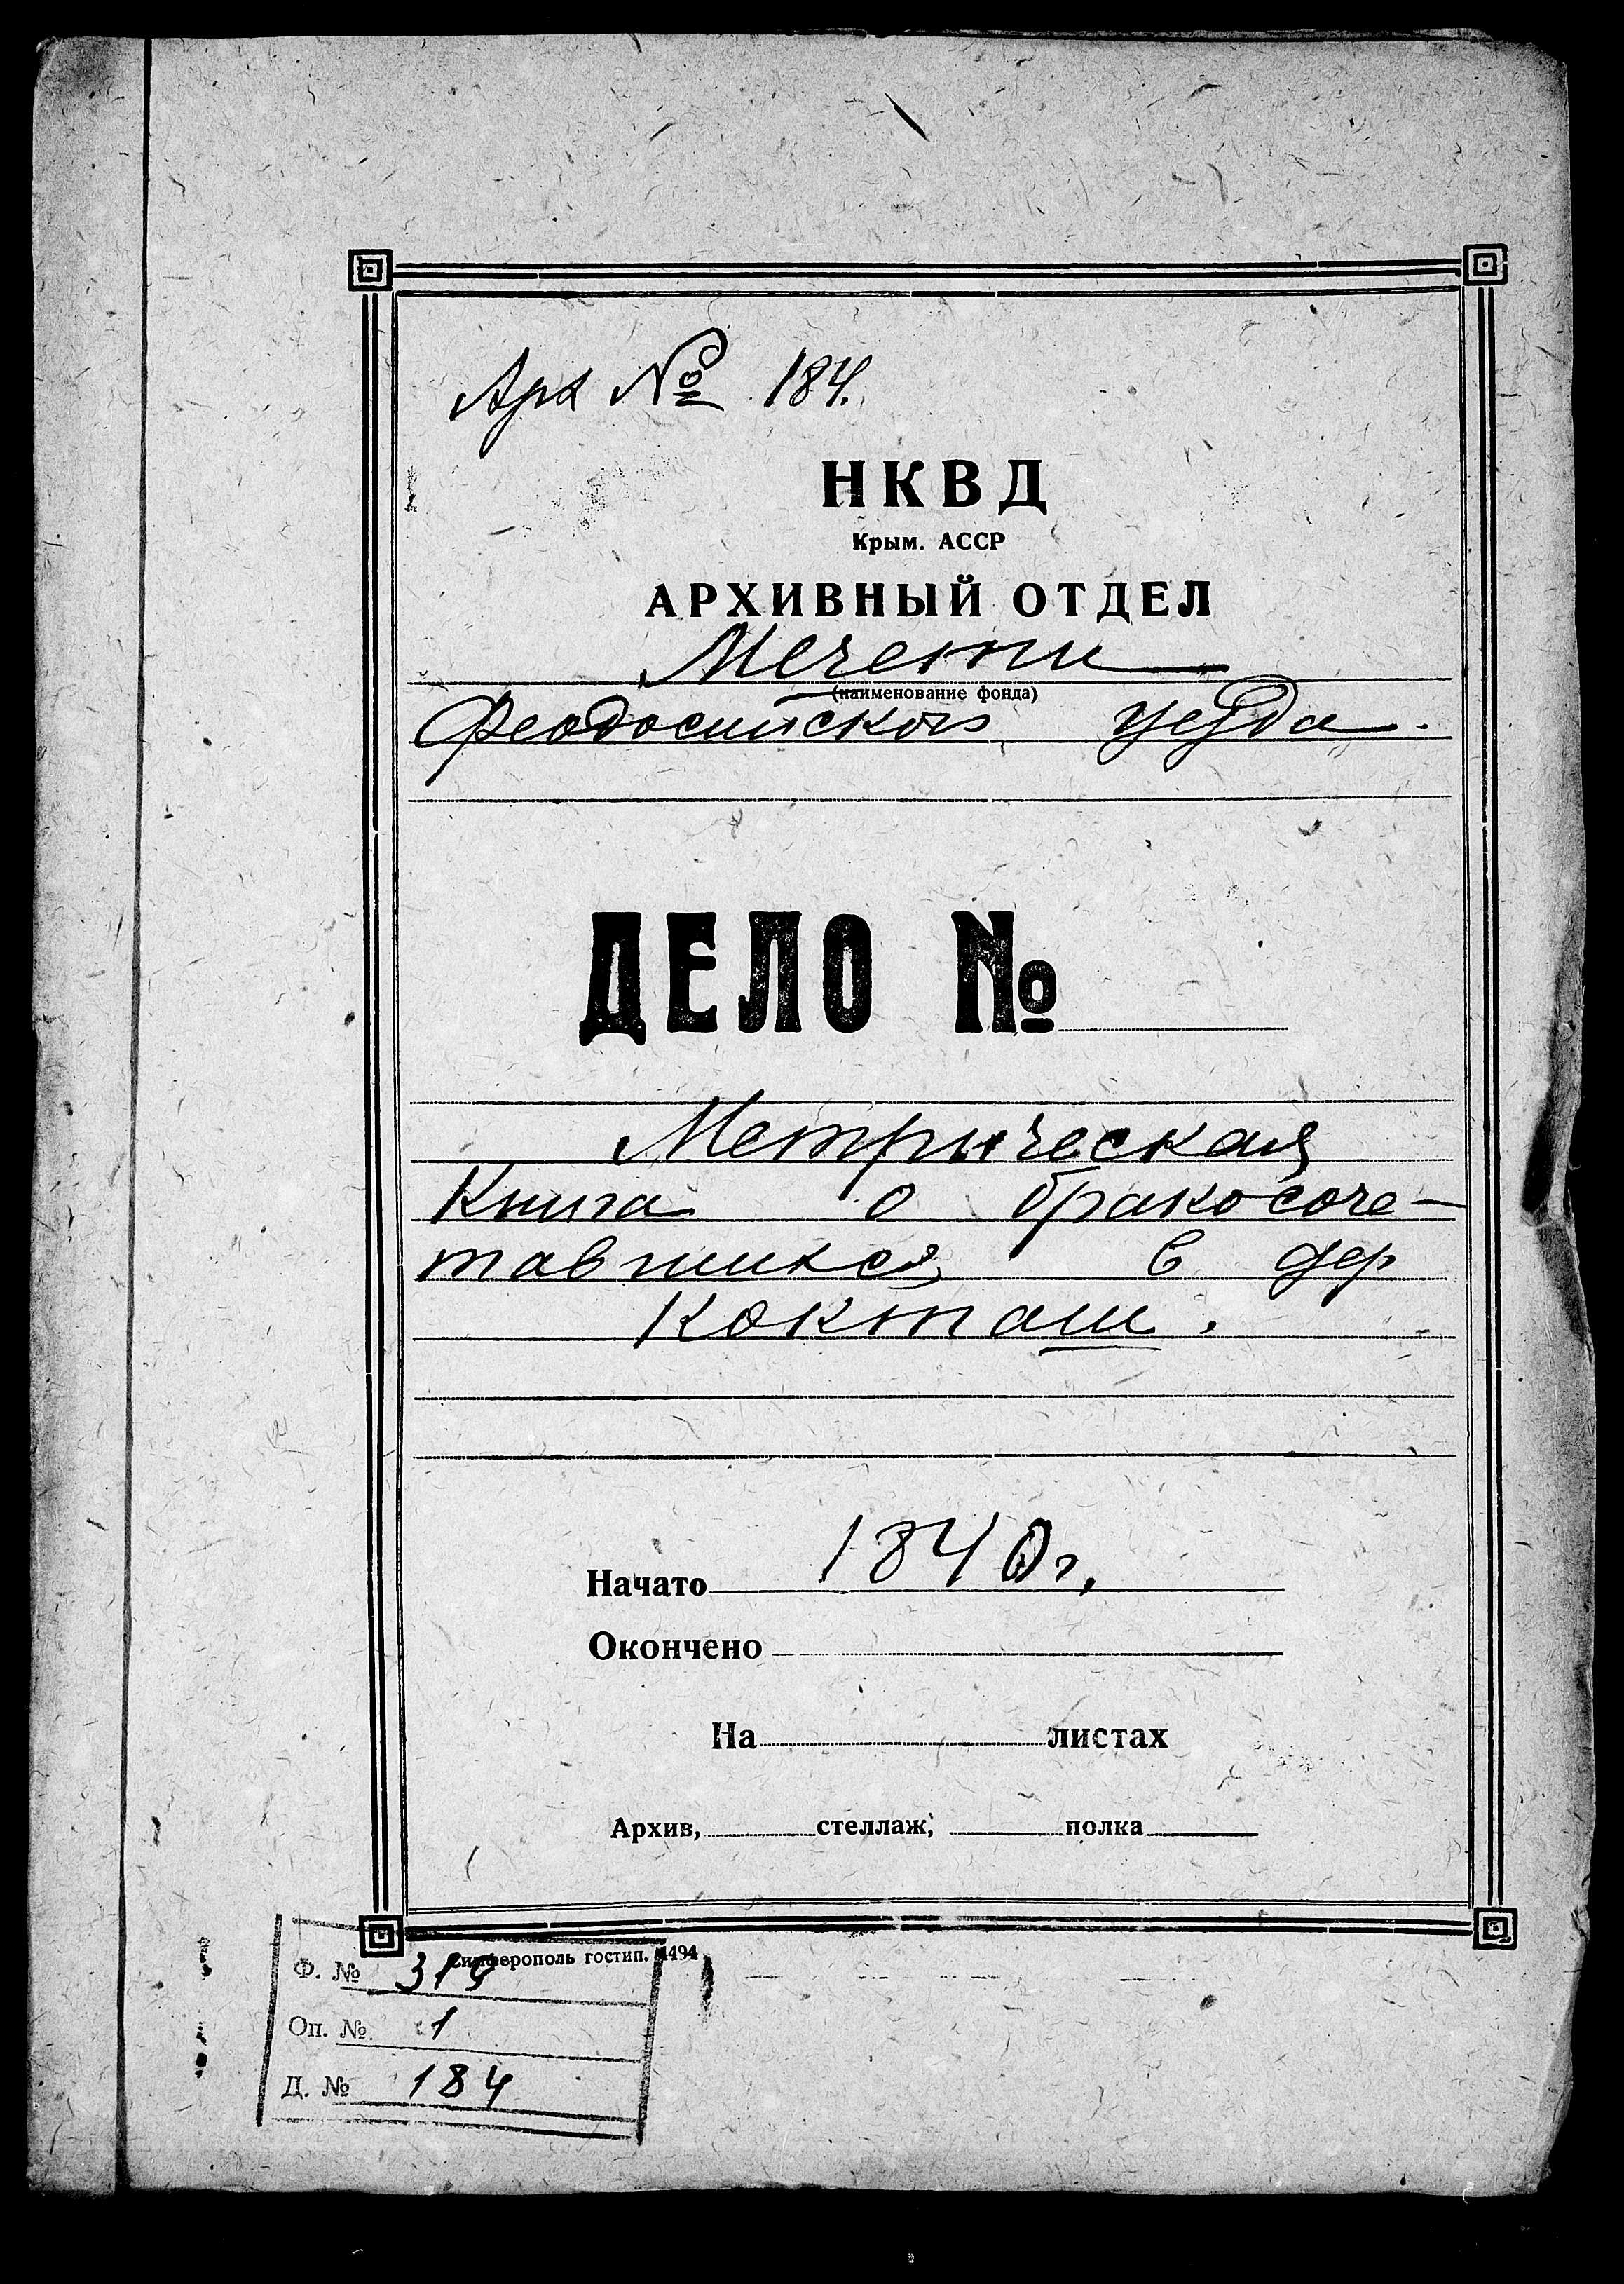 Арх № 184.
НКВД
Крым. АССР
АРХИВНЫЙ ОТДЕЛ
Мечети
(наименование фонда)
Феодосийского уезда.
ДЕЛО №
Метрическая
Книга о бракосоче-
тавшихся в дер
Кокташ.
Начато 1840 г.
Окончено
На листах
Архив, стеллаж, полка
Симферополь гостип. 4494
Ф. № 319
Оп. № 1
Д. № 184